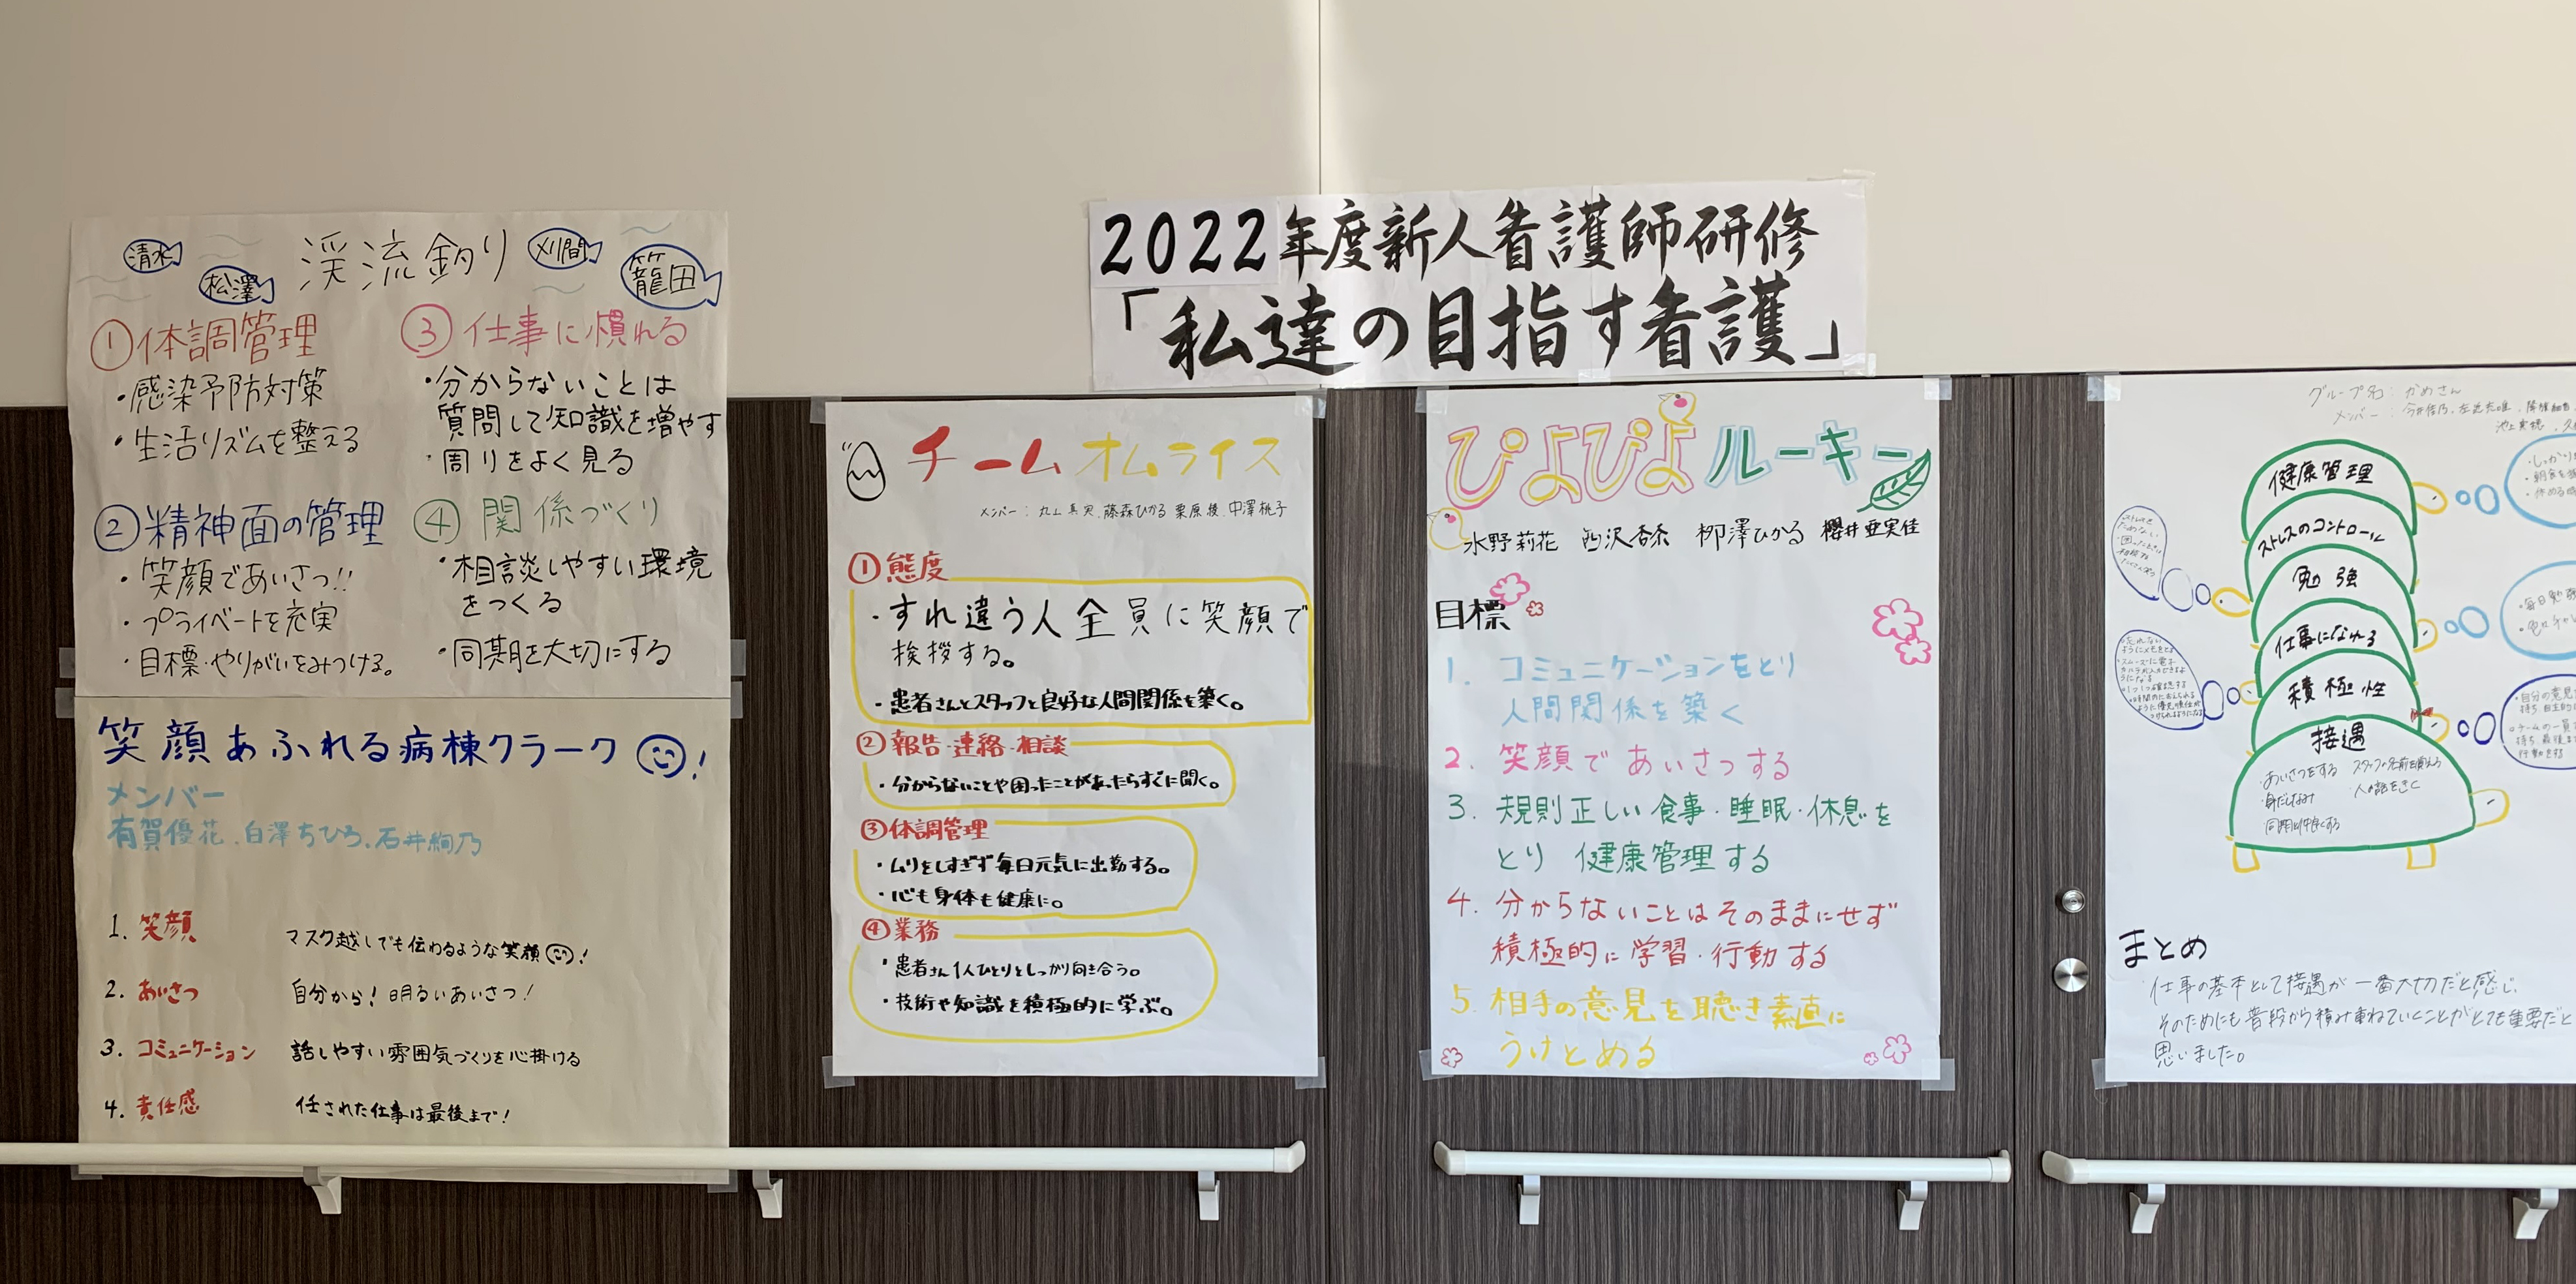 2022年度新人看護師研修
「私達の目指す看護」
渓流釣り
清水
松澤
刈間
籠田
①体調管理
・感染予防対策
・生活リズムを整える
②精神面の管理
・笑顔であいさつ!!
・プライベートを充実
・目標・やりがいをみつける。
③仕事に慣れる
・分からないことは
質問して知識を増やす
・周りをよく見る
④関係づくり
・相談しやすい環境
をつくる
・同期を大切にする
笑顔あふれる病棟クラーク!
メンバー
有賀優花、白澤ちひろ、石井絢乃
1. 笑顔 マスク越しでも伝わるような笑顔!
2. あいさつ 自分から!明るいあいさつ!
3. コミュニケーション 話しやすい雰囲気づくりを心掛ける
4. 責任感 任された仕事は最後まで!
チームオムライス
メンバー：丸山真実、藤森ひかる 栗原 中澤桃子
①態度
・すれ違う人全員に笑顔で
挨拶する。
・患者さんとスタッフと良好な人間関係を築く。
②報告・連絡・相談
・分からないことや困ったことがあったらすぐに聞く。
③体調管理
・ムリをしすぎず毎日元気に出勤する。
・心も身体も健康に。
④業務
・患者さん1人ひとりとしっかり向き合う。
・技術や知識を積極的に学ぶ。
ぴよぴよルーキー
水野莉花 西沢杏奈 柳澤ひかる 櫻井亜実佳
目標
1. コミュニケーションをとり
人間関係を築く
2. 笑顔であいさつする
3. 規則正しい食事・睡眠・休息を
とり 健康管理する
4. 分からないことはそのままにせず
積極的に学習・行動する
5. 相手の意見を聴き素直に
うけとめる
グループ名：かめさん
メンバー：
健康管理
ストレスのコントロール
勉強
仕事になれる
積極性
接遇
・あいさつをする スタッフの名前を覚える
・身だしなみ ・人の話をきく
・同期と仲良くする
まとめ
仕事の基本として接遇が一番大切だと感じ、
そのためにも普段から積み重ねていくことがとても重要だと
思いました。